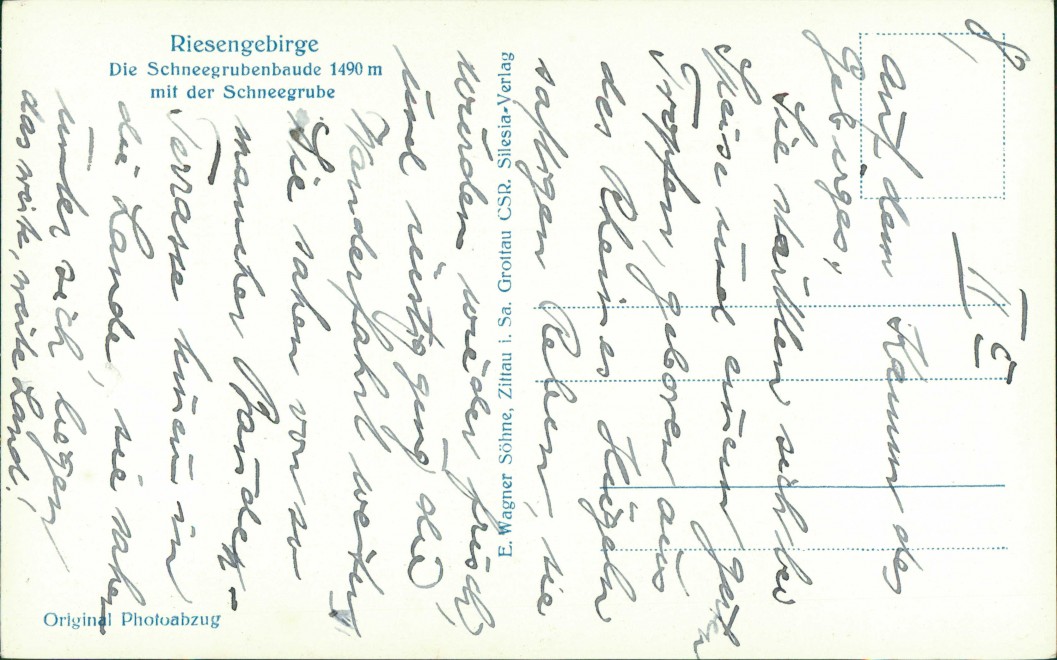 Riesengebirge
Die Schneegrubenbaude 1490 m
mit der Schneegrube
E. Wagner Söhne, Zittau i. Sa. Grottau ČSR. Silesia-Verlag
Original Photoabzug
II
auf dem Kamm des
Gebirges,
Sie stärkten sich bei
Speise und einem guten
Tropfen, geboren aus
des Rheines Hügeln
saftigen Reben, sie
wurden wieder frisch,
und rüstig ging die
Wanderfahrt weiter,
Sie sahen von so
mancher Bauden-
Terrasse hinein in
die Lande, sie sahen
unter sich liegen
das weite, weite Land!